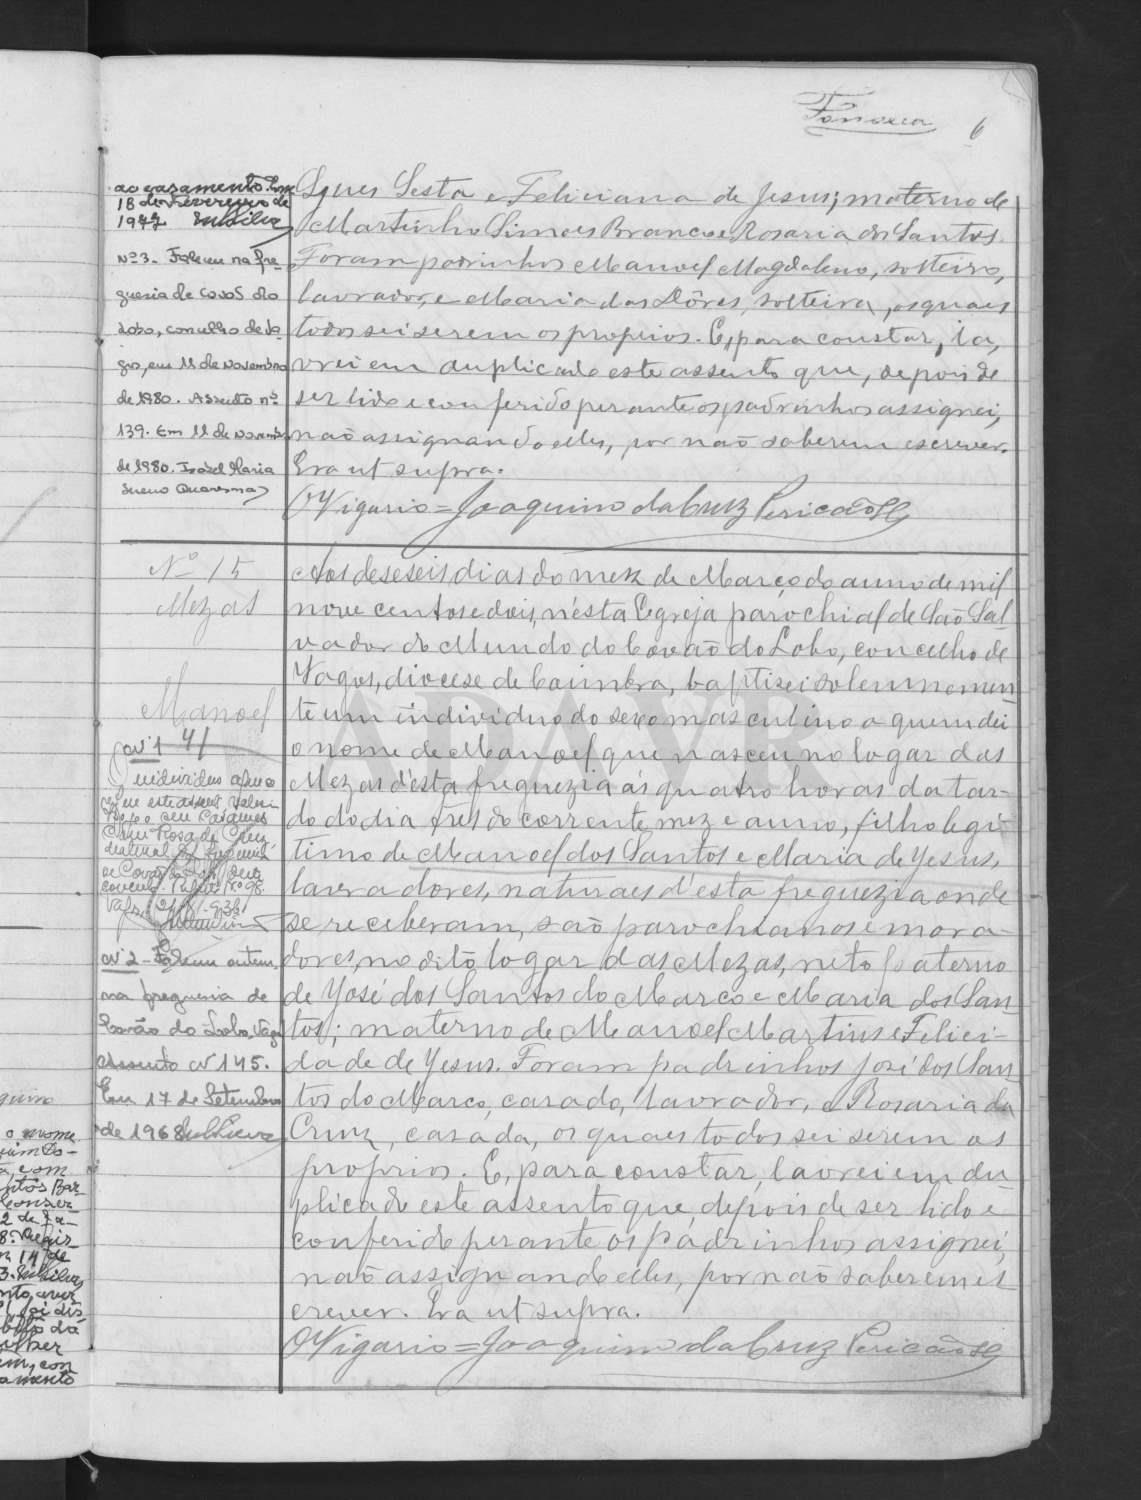 Fonseca 6
ao casamento. Em
18 de Fevereiro de
1977
Nº 3. Faleceu na fre-
guesia de Covão do
Lobo, concelho de Va-
gos, em 11 de Novembro
de 1980. Assento nº
139. Em 11 de Novembro
de 1980. Isabel Maria
Quaresma
Sesta e Feliciana de Jesus; materno de
Martinho Simões Branco e Rosaria dos Santos.
Foram padrinhos Manoel Magdaleno, solteiro,
lavrador, e Maria das Dôres, solteira, os quaes
todos sei serem os proprios. E, para constar, la,
vrei em duplicado este assento que, depois de
ser lido e conferido perante os padrinhos assignei,
não assignando elles, por não saberem escrever.
Era ut supra.
O Vigario = Joaquim da Cruz Pericão
Nº 15
Mezas
Manoel
Aos deseseis dias do mez de Março do anno de mil
nove centos e dois, n'ésta Egreja parochial de São Sal-
vador do Mundo do Covão do Lobo, concelho de
Vagos, diocese de Coimbra, baptisei solemnemen
te um individuo do sexo masculino a quem dei
o nome de Manoel que nasceu no logar das
Mezas d'ésta freguezia ás quatro horas da tar-
de do dia tres do corrente mez e anno, filho legi-
timo de Manoel dos Santos e Maria de Yesus,
lavradores, naturaes d'esta freguezia onde
se receberam, são parochianos e mora-
dores, no dito logar das Mezas, neto paterno
de Yosé dos Santos do Marco e Maria dos San
tos; materno de Manoel Martins e Felici-
dade de Yesus. Foram padrinhos José dos San
tos do Marco, casado, lavrador, e Rosaria da
Cruz, casada, os quaes todos sei serem os
proprios. E, para constar, lavrei em du-
plicado este assento que, depois de ser lido e
conferido perante os padrinhos assignei,
não assignando elles, por não saberem es
crever. Era ut supra.
O Vigario = Joaquim da Cruz Pericão
Nº 1
individuo a que
se
o seu casamento
com Rosa de
natural da freguesia
de Covão do Lobo, deste
concelho.
Nº 2 - Faleceu ontem,
na freguesia de
Covão do Lobo, Vagos
Assento Nº 145.
Em 17 de Setembro
de 1968
ADAVR
o nome
com